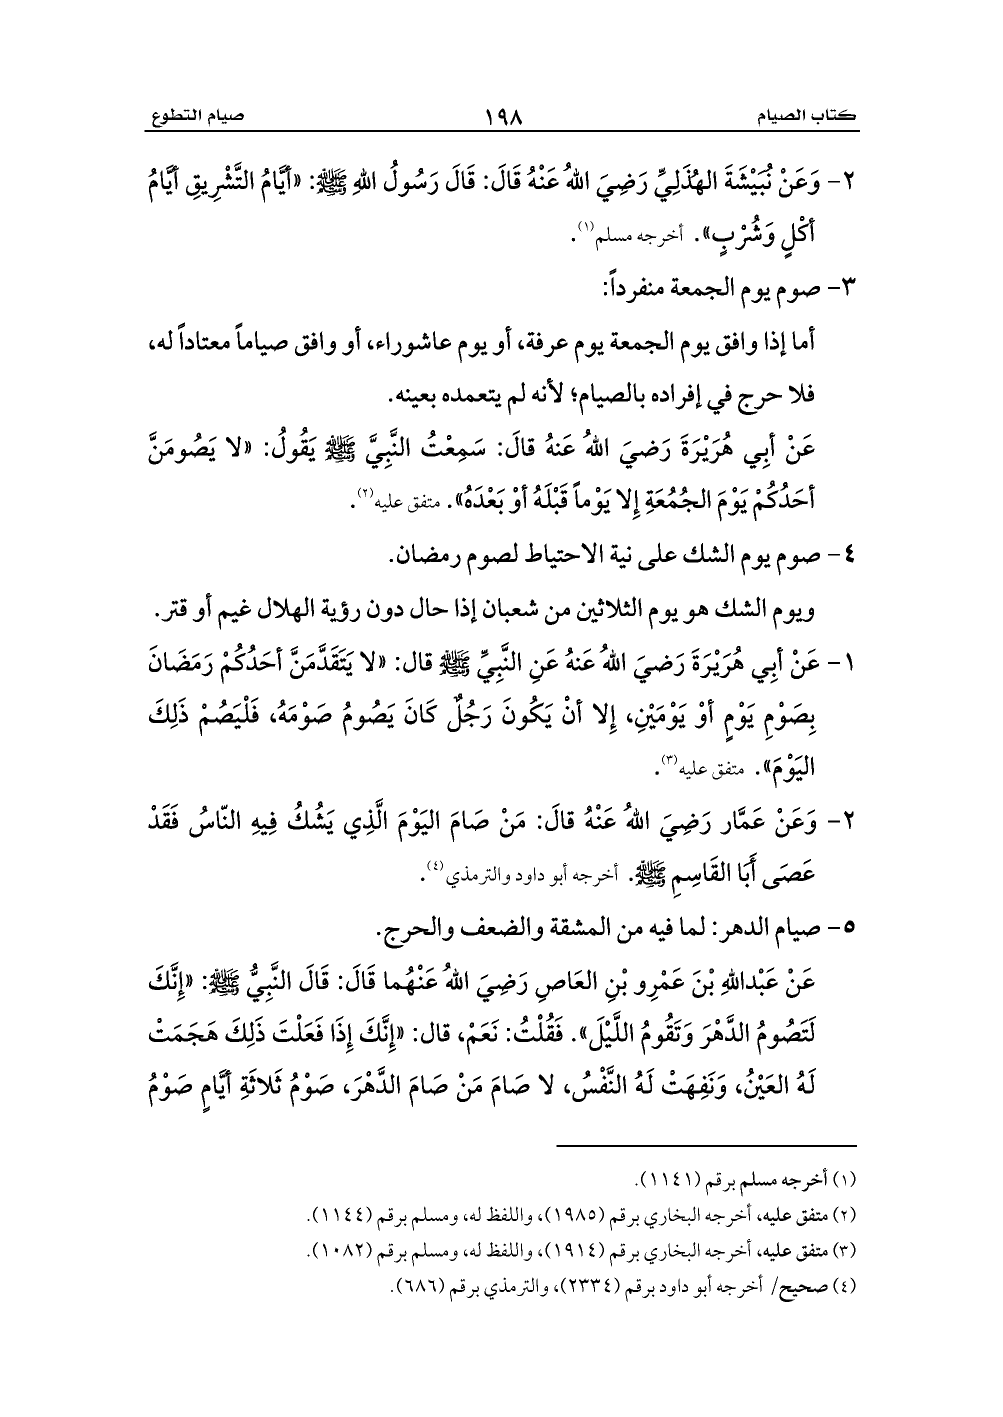 كتاب الصيام ١٩٨ صيام التطوع
٢- وَعَنْ نُبَيْشَةَ الهُذَلِيِّ رَضِيَ اللهُ عَنْهُ قَالَ: قَالَ رَسُولُ اللهِ ﷺ: «أيَّامُ التَّشْرِيقِ أيَّامُ
أكْلٍ وَشُرْبٍ». أخرجه مسلم(١).
٣- صوم يوم الجمعة منفرداً:
أما إذا وافق يوم الجمعة يوم عرفة، أو يوم عاشوراء، أو وافق صياماً معتاداً له،
فلا حرج في إفراده بالصيام؛ لأنه لم يتعمده بعينه.
عَنْ أبِي هُرَيْرَةَ رَضيَ اللهُ عَنهُ قالَ: سَمِعْتُ النَّبِيَّ ﷺ يَقُولُ: «لا يَصُومَنَّ
أحَدُكُمْ يَوْمَ الجُمُعَةِ إِلا يَوْماً قَبْلَهُ أوْ بَعْدَهُ». متفق عليه(٢).
٤- صوم يوم الشك على نية الاحتياط لصوم رمضان.
ويوم الشك هو يوم الثلاثين من شعبان إذا حال دون رؤية الهلال غيم أو قتر.
١- عَنْ أبِي هُرَيْرَةَ رَضيَ اللهُ عَنهُ عَنِ النَّبِيِّ ﷺ قال: «لا يَتَقَدَّمَنَّ أحَدُكُمْ رَمَضَانَ
بِصَوْمِ يَوْمٍ أوْ يَوْمَيْنِ، إِلا أنْ يَكُونَ رَجُلٌ كَانَ يَصُومُ صَوْمَهُ، فَلْيَصُمْ ذَلِكَ
اليَوْمَ». متفق عليه(٣).
٢- وَعَنْ عَمَّار رَضِيَ اللهُ عَنْهُ قالَ: مَنْ صَامَ اليَوْمَ الَّذِي يَشُكُ فِيهِ النّاسُ فَقَدْ
عَصَى أَبَا القَاسِمِ ﷺ. أخرجه أبو داود والترمذي(٤).
٥- صيام الدهر: لما فيه من المشقة والضعف والحرج.
عَنْ عَبْداللهِ بْنَ عَمْرِو بْنِ العَاصِ رَضِيَ اللهُ عَنْهُما قَالَ: قَالَ النَّبِيُّ ﷺ: «إِنَّكَ
لَتَصُومُ الدَّهْرَ وَتَقُومُ اللَّيْلَ». فَقُلْتُ: نَعَمْ، قال: «إِنَّكَ إِذَا فَعَلْتَ ذَلِكَ هَجَمَتْ
لَهُ العَيْنُ، وَنَفِهَتْ لَهُ النَّفْسُ، لا صَامَ مَنْ صَامَ الدَّهْرَ، صَوْمُ ثَلاثَةِ أيَّامٍ صَوْمُ
(١) أخرجه مسلم برقم (١١٤١).
(٢) متفق عليه، أخرجه البخاري برقم (١٩٨٥)، واللفظ له، ومسلم برقم (١١٤٤).
(٣) متفق عليه، أخرجه البخاري برقم (١٩١٤)، واللفظ له، ومسلم برقم (١٠٨٢).
(٤) صحيح/ أخرجه أبو داود برقم (٢٣٣٤)، والترمذي برقم (٦٨٦).